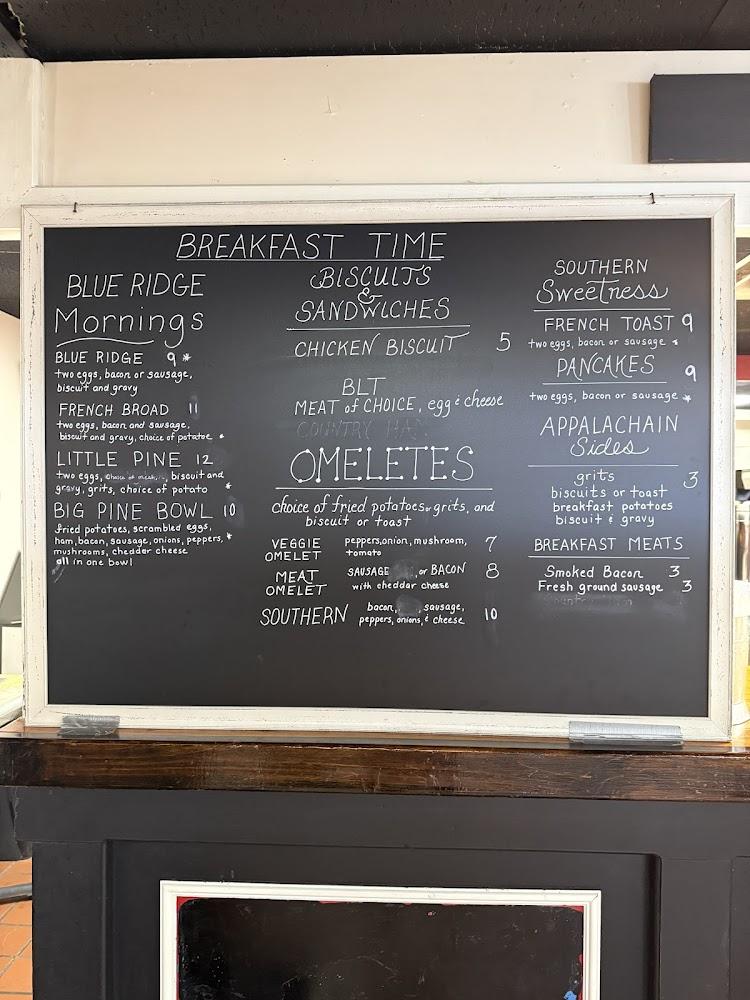 BREAKFAST TIME
BLUE RIDGE
Mornings
BLUE RIDGE 9 *
two eggs, bacon or sausage,
biscuit and gravy
FRENCH BROAD 11
two eggs, bacon and sausage,
biscuit and gravy, choice of potatoe *
LITTLE PINE 12
two eggs, choice of meat, biscuit and
gravy, grits, choice of potato *
BIG PINE BOWL 10
fried potatoes, scrambled eggs,
ham, bacon, sausage, onions, peppers, *
mushrooms, chedder cheese
all in one bowl
BISCUITS
&
SANDWICHES
CHICKEN BISCUIT 5
BLT
MEAT of CHOICE, egg & cheese
COUNTRY HAM
OMELETES
choice of fried potatoes or grits, and
biscuit or toast
VEGGIE OMELET peppers, onion, mushroom, 7
tomato
MEAT OMELET SAUSAGE or BACON 8
with cheddar cheese
SOUTHERN bacon, sausage, 10
peppers, onions, & cheese
SOUTHERN
Sweetness
FRENCH TOAST 9
two eggs, bacon or sausage *
PANCAKES 9
two eggs, bacon or sausage *
APPALACHAIN
Sides
grits 3
biscuits or toast
breakfast potatoes
biscuit & gravy
BREAKFAST MEATS
Smoked Bacon 3
Fresh ground sausage 3